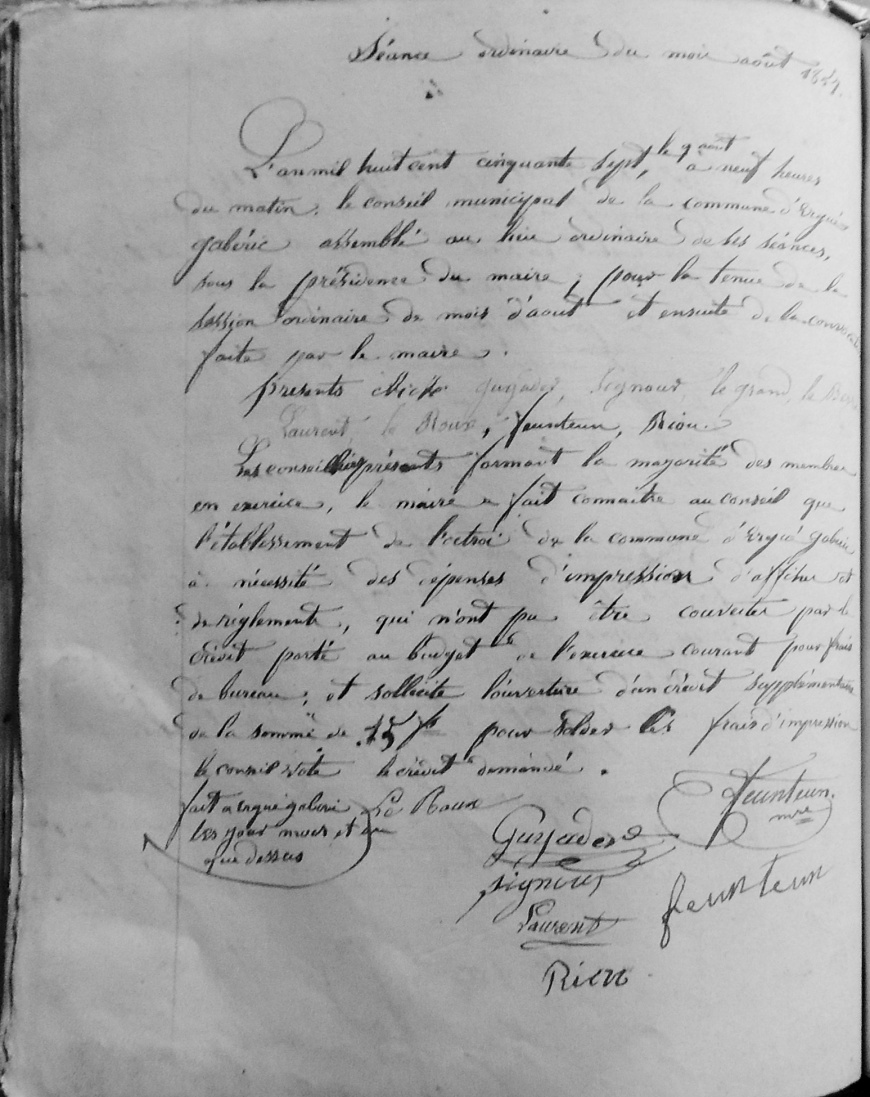 Séance ordinaire du mois août 1857.
le 9 aout
L'an mil huit cent cinquante sept, à neuf heures
du matin. le conseil municipal de la commune d'Ergué
gabéric assemblé au lieu ordinaire de ses séances,
sous la présidence du maire, pour la tenue de la
session ordinaire de mois d'aout et ensuite de la
faite par le maire.
présents guyader, Signour, le grand, le
Laurent, le Roux, feunteun, Riou.
Les conseillers présents formant la majorité des membres
en exercice, le maire a fait connaitre au conseil que
l'établissement de l'octroi de la commune d'Ergué gabéric
à nécessité des dépenses d'impression d'affiches et
de réglements, qui n'ont pu être couvertes par le
crédit porté au budget de l'exercice courant pour frais
de bureau, et sollicite l'ouverture d'un crédit supplémentaire
de la somme de 15 fr pour solder les frais d'impression
le conseil vote le crédit demandé.
fait a ergué gaberic Le Roux
les jour mois et an
que dessus
feunteun.
mre
Guyader
Signour
feunteun
Laurent
Riou